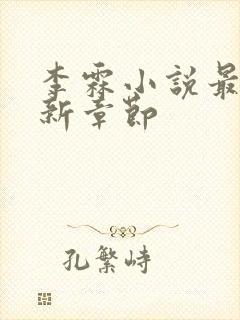 李霖小說最
新章節
孔繁峙